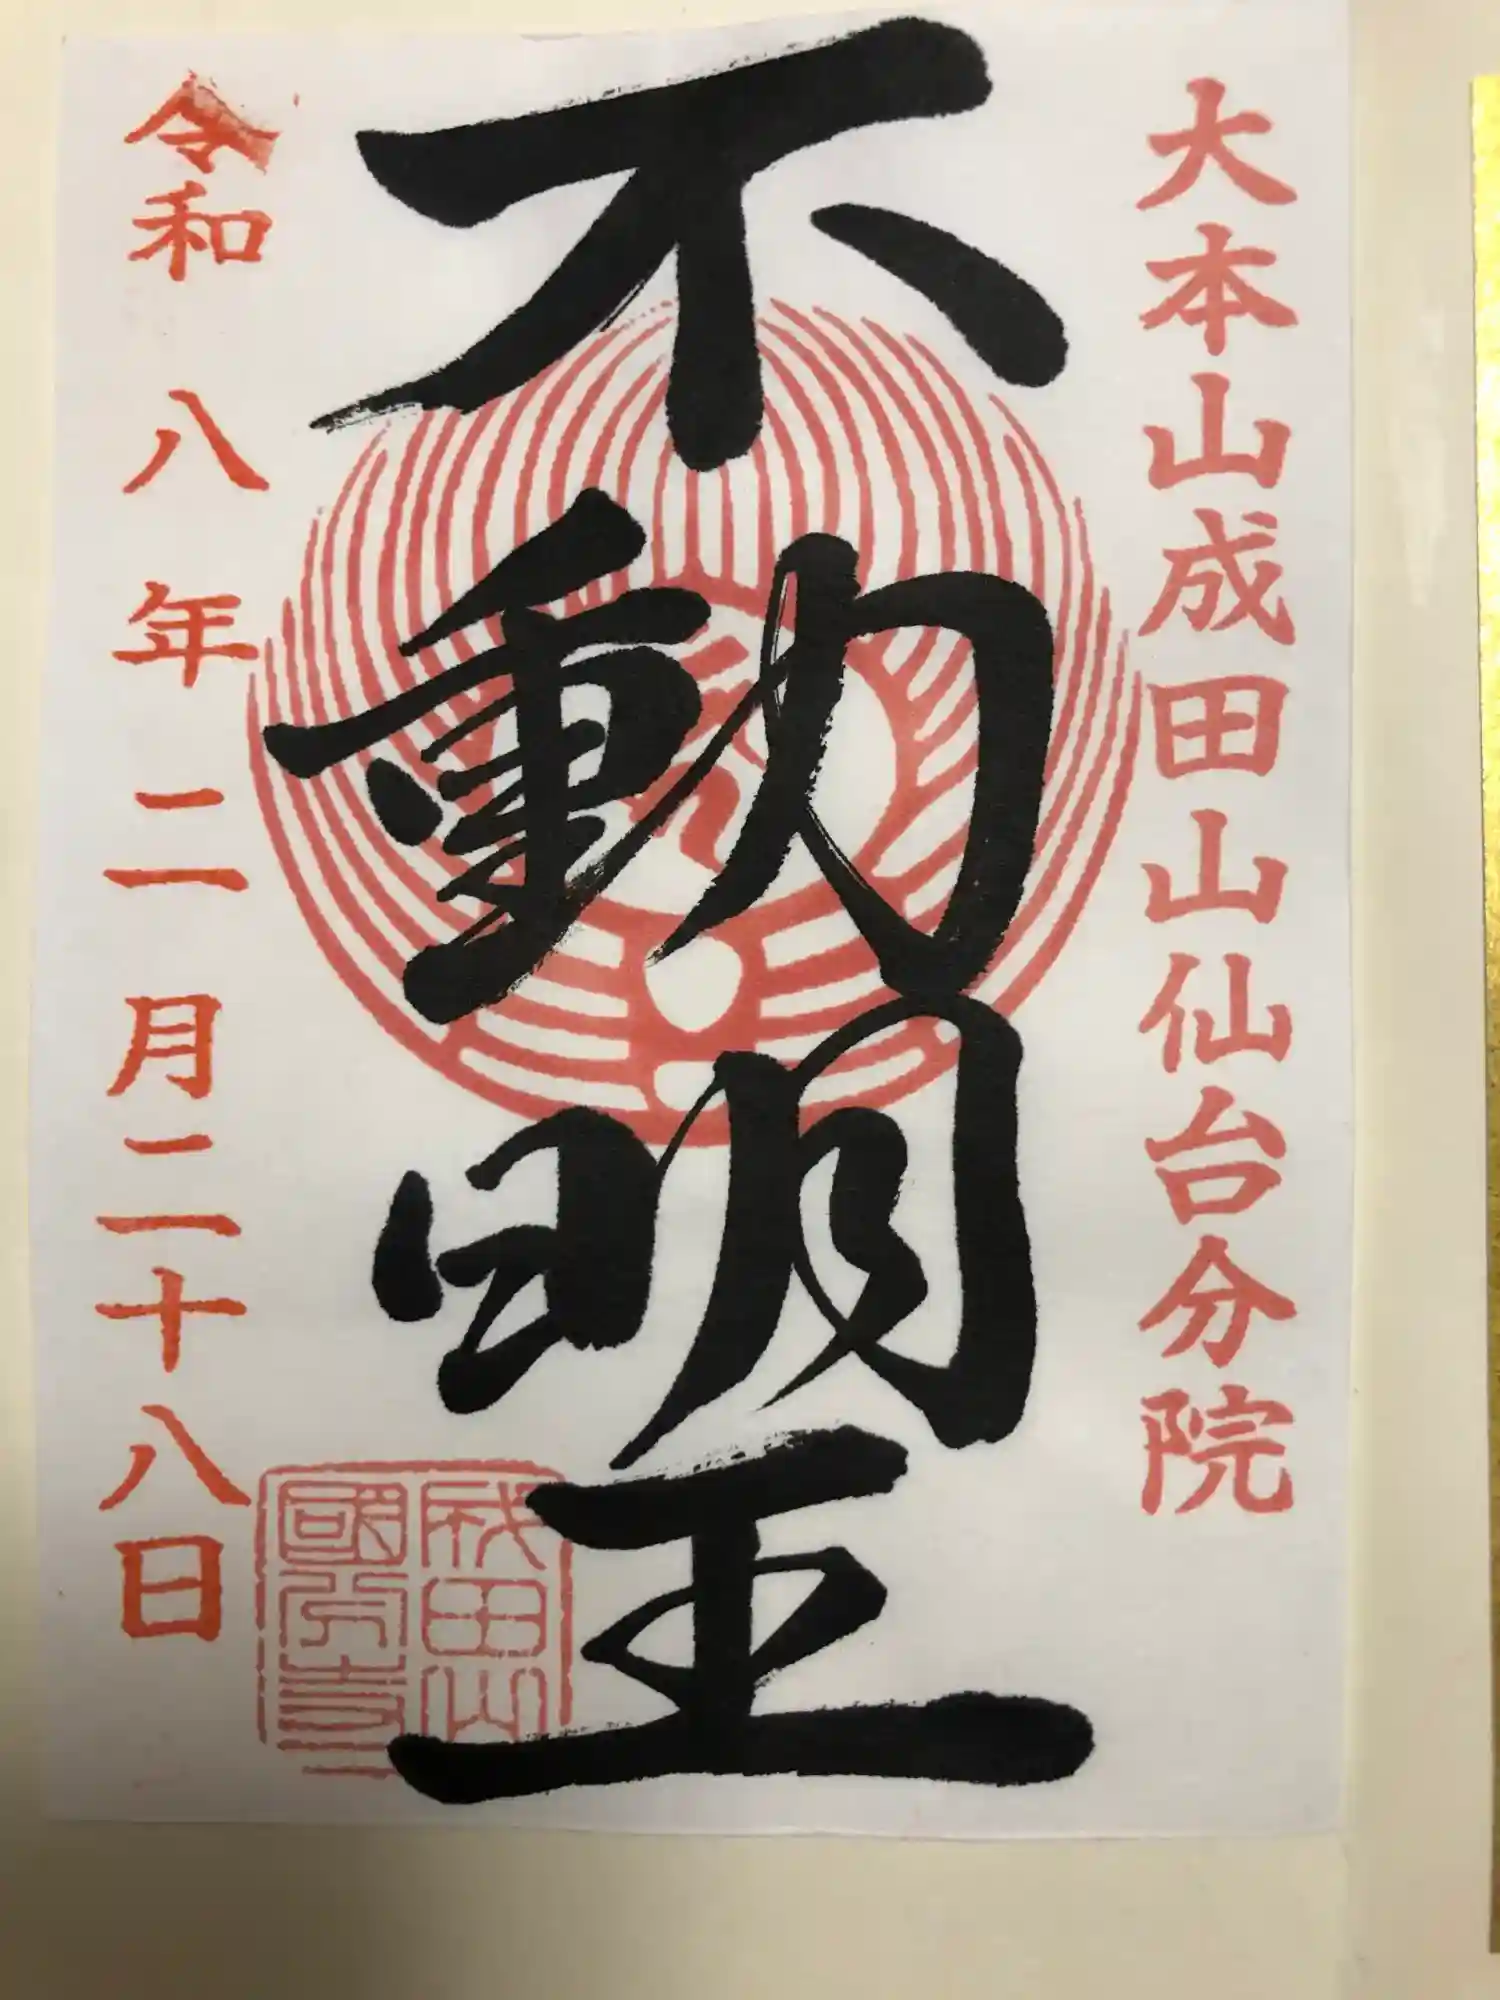 大本山成田山仙台分院
不動明王
令和八年二月二十八日
成田山
國分寺